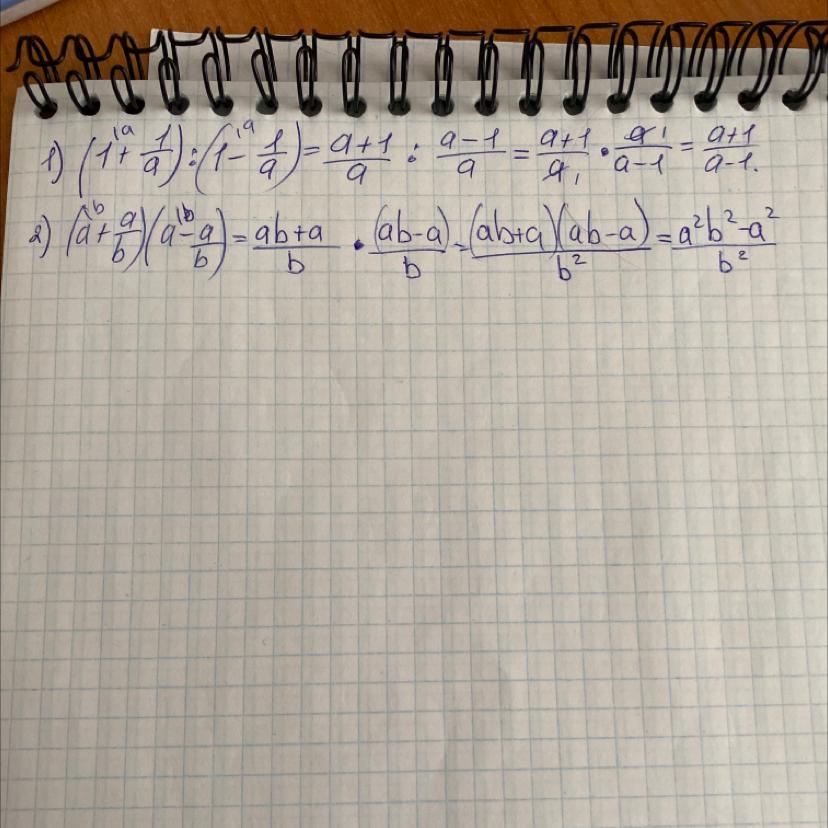 1) (1 + 1/a) : (1 - 1/a) = (a+1)/a : (a-1)/a = (a+1)/a · a/(a-1) = (a+1)/(a-1).
2) (a + a/b)(a - a/b) = (ab+a)/b · (ab-a)/b = (ab+a)(ab-a)/b² = (a²b²-a²)/b²